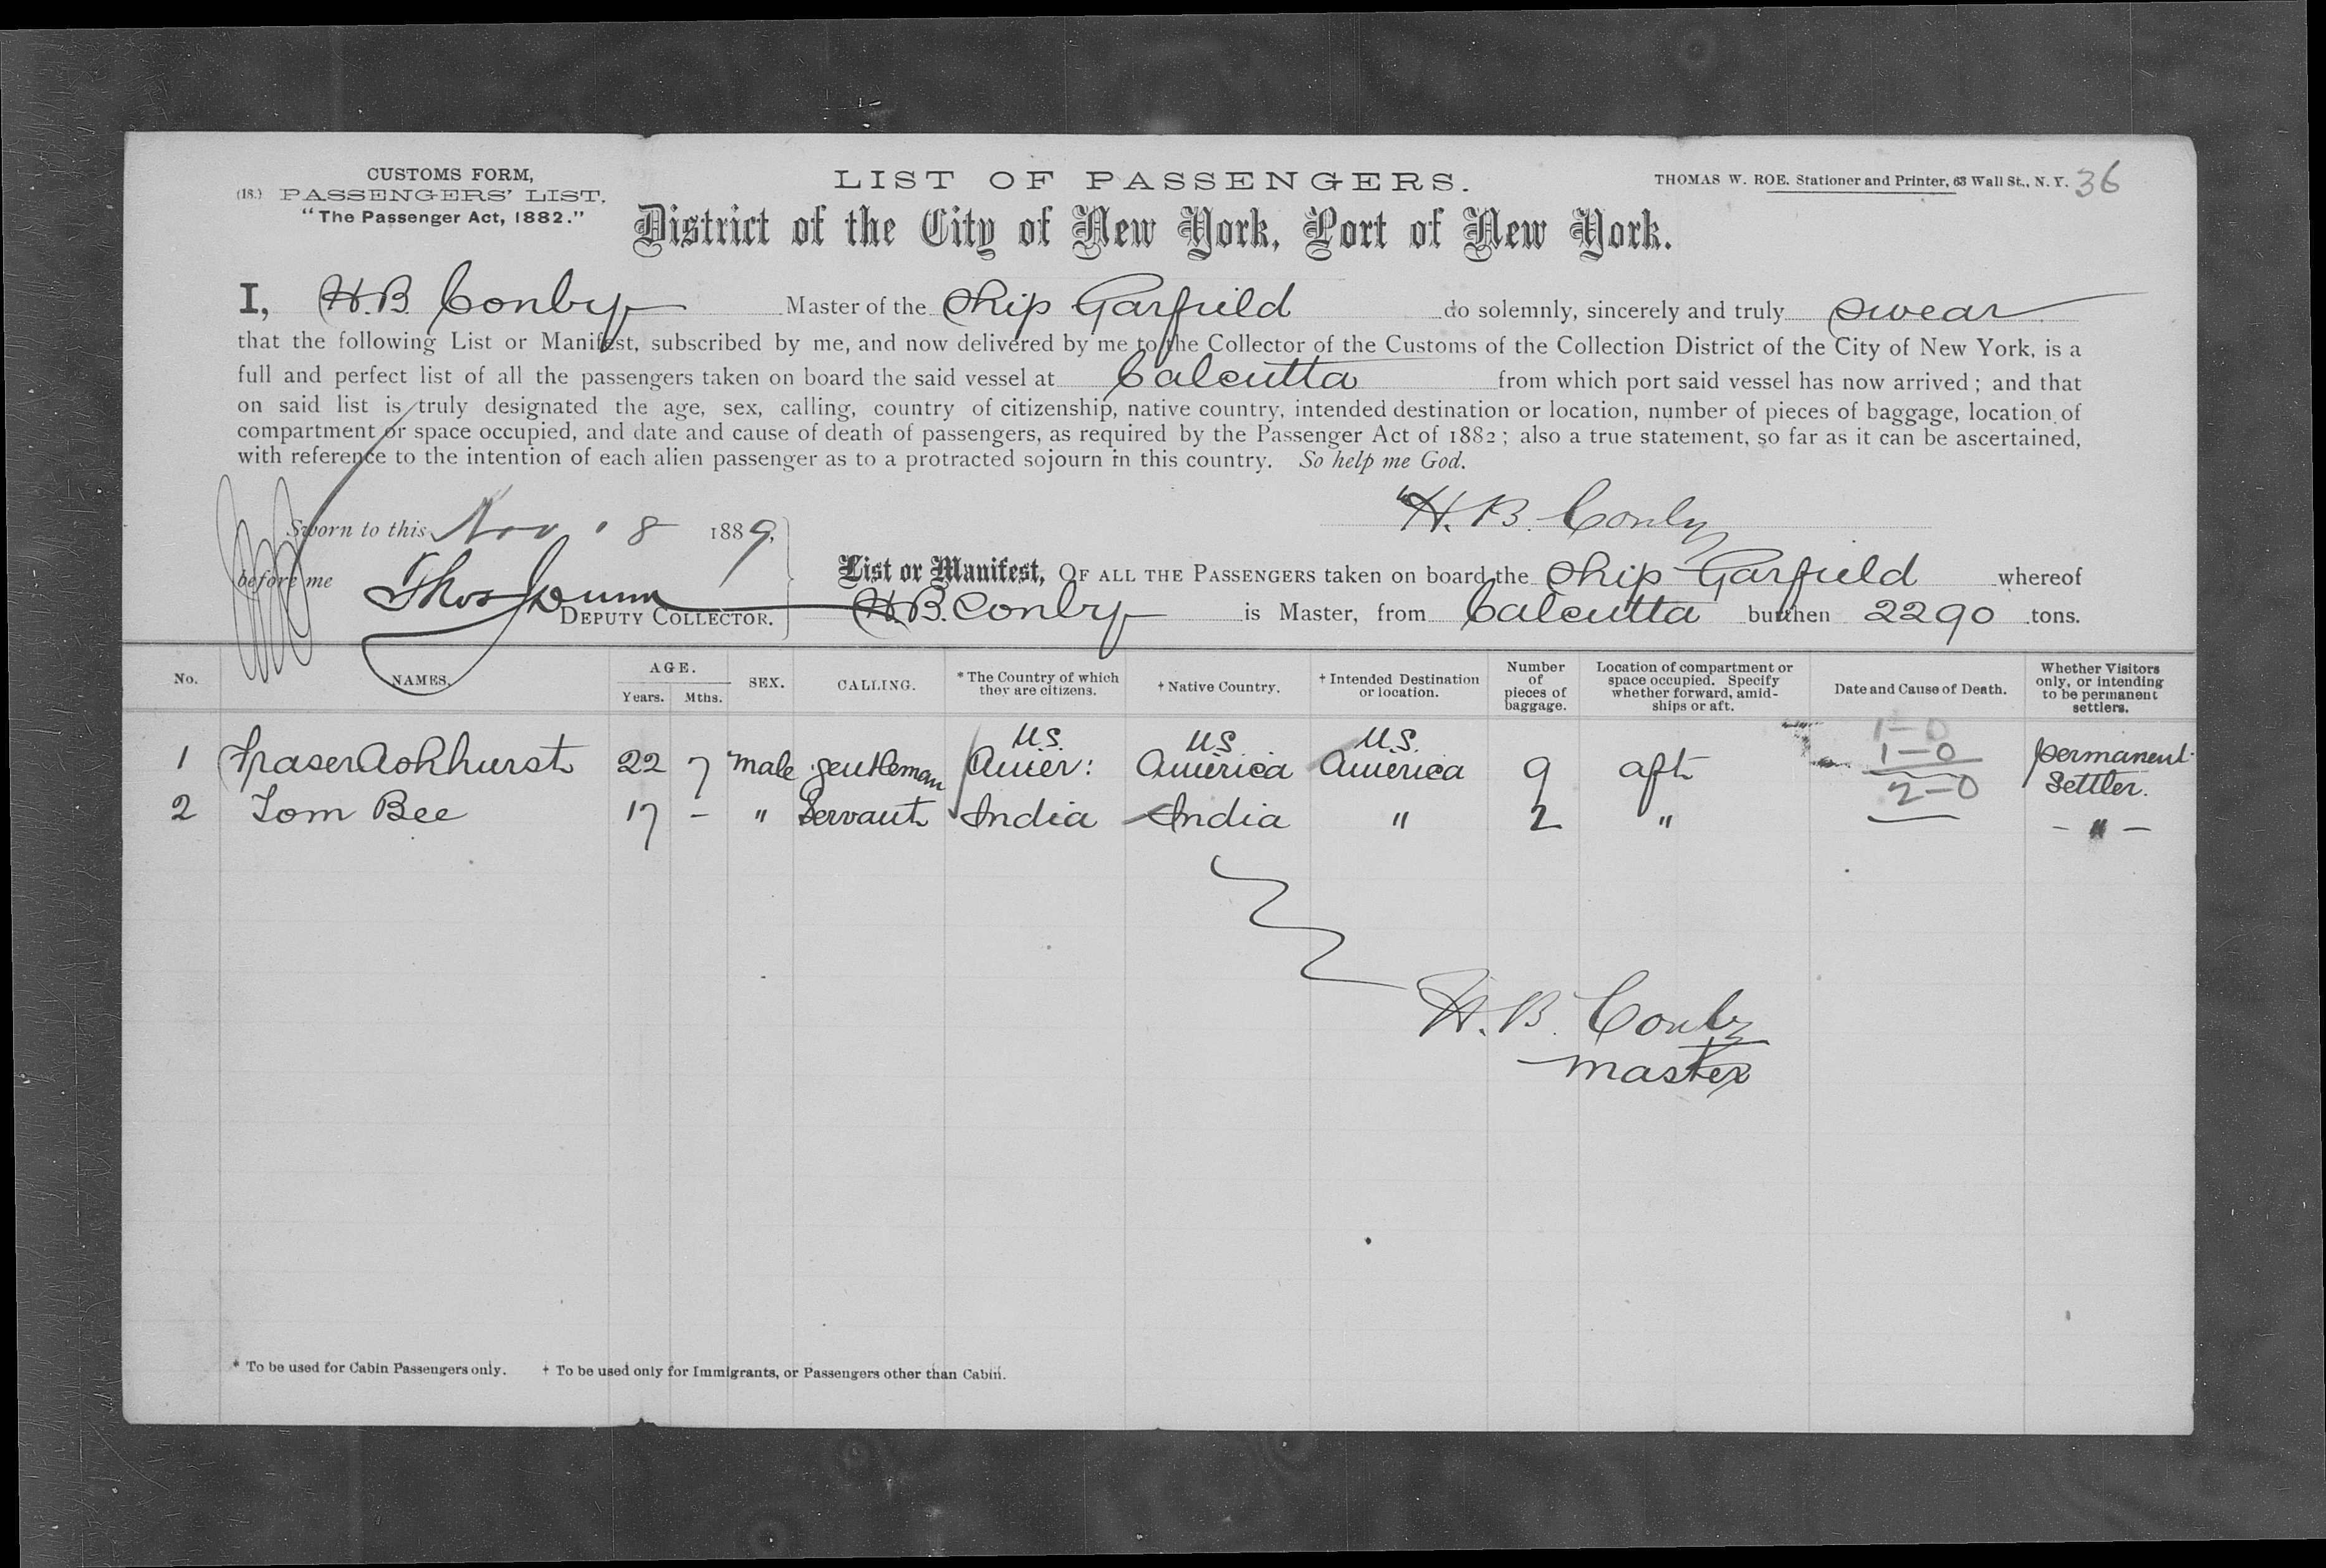 CUSTOMS FORM,
(18.) PASSENGERS' LIST.
"The Passenger Act, 1882."
LIST OF PASSENGERS.
THOMAS W. ROE. Stationer and Printer, 63 Wall St., N. Y. 36
District of the City of New York, Port of New York.
I, H.B. Conby Master of the Ship Garfield do solemnly, sincerely and truly swear
that the following List or Manifest, subscribed by me, and now delivered by me to the Collector of the Customs of the Collection District of the City of New York, is a
full and perfect list of all the passengers taken on board the said vessel at Calcutta from which port said vessel has now arrived; and that
on said list is truly designated the age, sex, calling, country of citizenship, native country, intended destination or location, number of pieces of baggage, location of
compartment or space occupied, and date and cause of death of passengers, as required by the Passenger Act of 1882; also a true statement, so far as it can be ascertained,
with reference to the intention of each alien passenger as to a protracted sojourn in this country. So help me God.
H. B. Conby
Sworn to this Nov 18 1889,
before me Thos Dunn
DEPUTY COLLECTOR.
List or Manifest, OF ALL THE PASSENGERS taken on board the Ship Garfield whereof
H.B. Conby is Master, from Calcutta burthen 2290 tons.
No. NAMES. AGE. Years. Mths. SEX. CALLING. * The Country of which they are citizens. † Native Country. † Intended Destination or location. Number of pieces of baggage. Location of compartment or space occupied. Specify whether forward, amidships or aft. Date and Cause of Death. Whether Visitors only, or intending to be permanent settlers.
U.S. U.S. U.S. 1-0
1 Fraser Ashhurst 22 7 male gentleman Amer: America America 9 aft 1-0 permanent settler.
2-0
2 Tom Bee 17 - " Servant India India " 2 " - " -
H. B. Conby
master
* To be used for Cabin Passengers only. † To be used only for Immigrants, or Passengers other than Cabin.